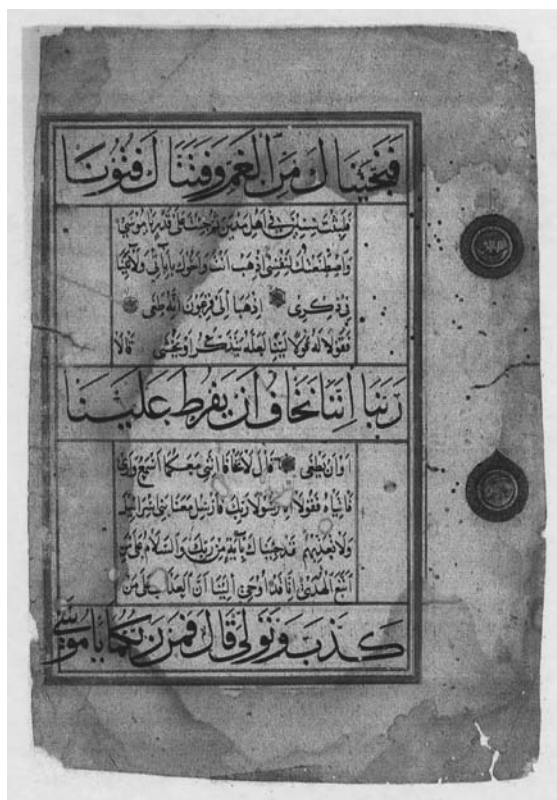 فنجيناك من الغم وفتناك فتونا
فلبثت سنين في اهل مدين ثم جئت على قدر يا موسى
واصطنعتك لنفسي اذهب انت واخوك باياتي ولا تنيا
في ذكري اذهبا الى فرعون انه طغى
فقولا له قولا لينا لعله يتذكر او يخشى قالا
ربنا اننا نخاف ان يفرط علينا
او ان يطغى قال لا تخافا انني معكما اسمع وارى
فاتياه فقولا انا رسولا ربك فارسل معنا بني اسرائيل
ولا تعذبهم قد جئناك باية من ربك والسلام على من
اتبع الهدى انا قد اوحي الينا ان العذاب على من
كذب وتولى قال فمن ربكما يا موسى